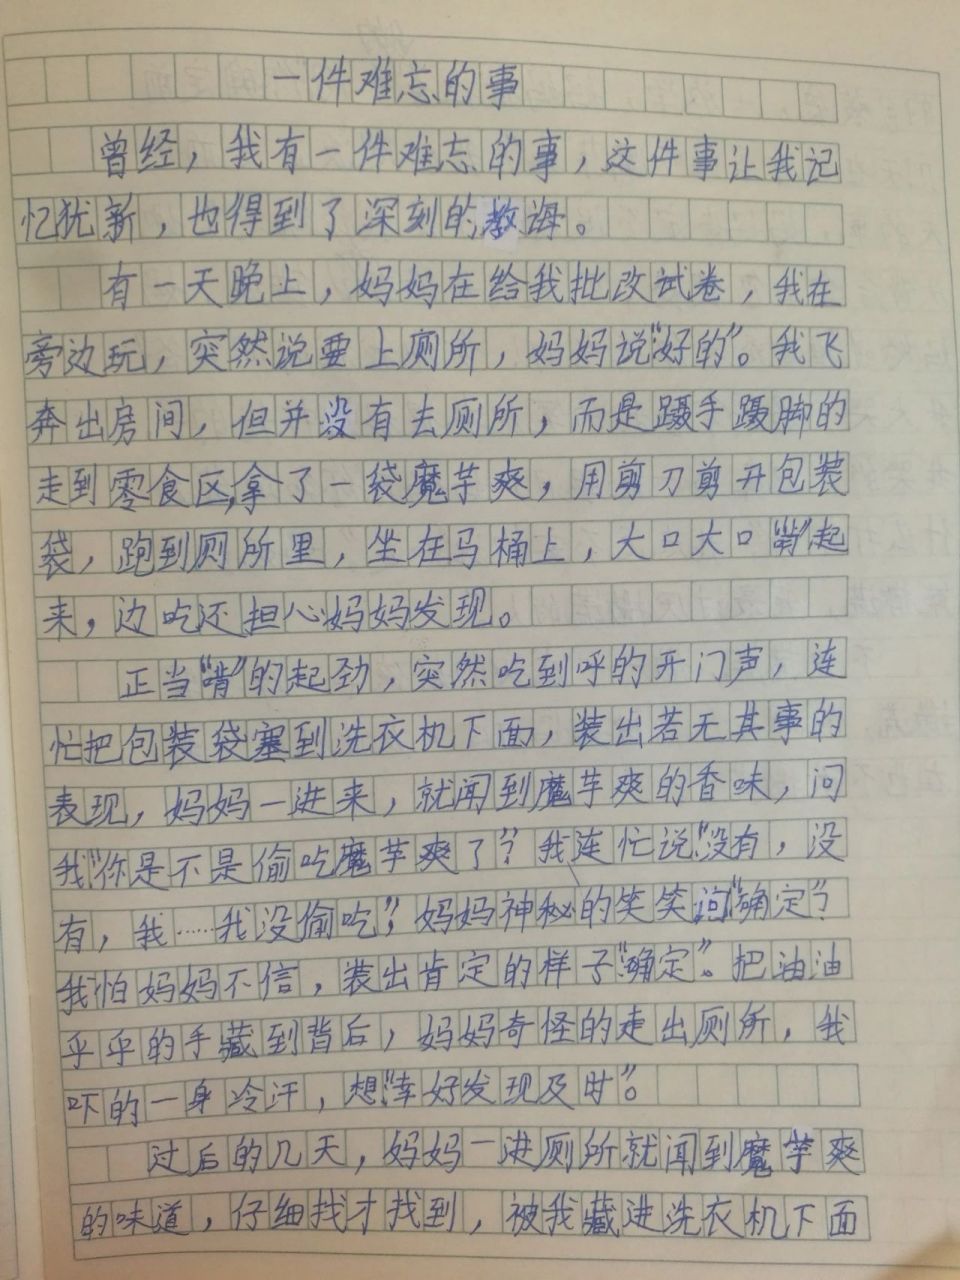 一件难忘的事
曾经，我有一件难忘的事，这件事让我记
忆犹新，也得到了深刻的教诲。
有一天晚上，妈妈在给我批改试卷，我在
旁边玩，突然说要上厕所，妈妈说“好的”。我飞
奔出房间，但并没有去厕所，而是蹑手蹑脚的
走到零食区，拿了一袋魔芋爽，用剪刀剪开包装
袋，跑到厕所里，坐在马桶上，大口大口“啃”起
来，边吃还担心妈妈发现。
正当“啃”的起劲，突然吃到呼的开门声，连
忙把包装袋塞到洗衣机下面，装出若无其事的
表现，妈妈一进来，就闻到魔芋爽的香味，问
我“你是不是偷吃魔芋爽了”？我连忙说“没有，没
有，我……我没偷吃”，妈妈神秘的笑笑问“确定”？
我怕妈妈不信，装出肯定的样子“确定”。把油油
乎乎的手藏到背后，妈妈奇怪的走出厕所，我
吓的一身冷汗，想“幸好发现及时”。
过后的几天，妈妈一进厕所就闻到魔芋爽
的味道，仔细找才找到，被我藏进洗衣机下面